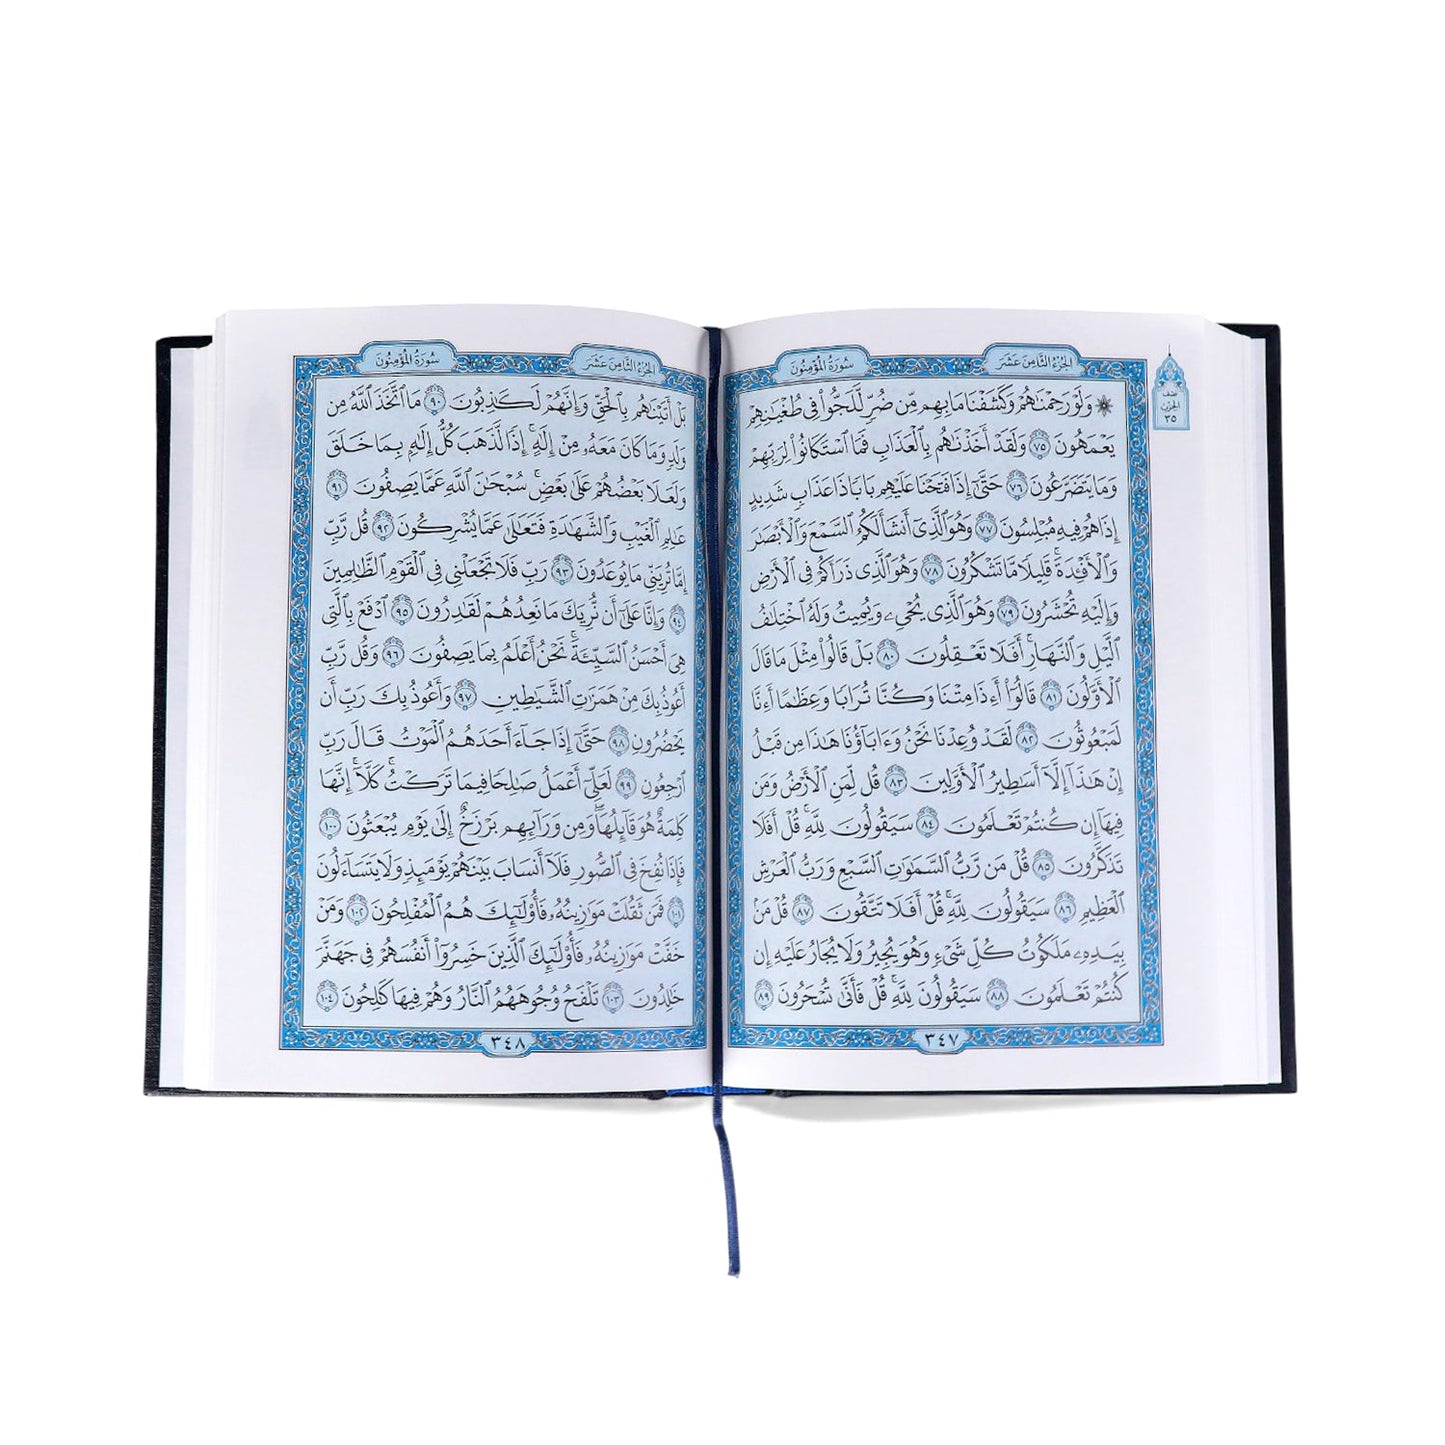 الجُزْءُ الثَّامِنَ عَشَرَ
سُورَةُ المُؤْمِنُونَ
نصف
الحزب
٣٥
۞ وَلَوْ رَحِمْنَٰهُمْ وَكَشَفْنَا مَا بِهِم مِّن ضُرٍّ لَّلَجُّوا۟ فِى طُغْيَٰنِهِمْ
يَعْمَهُونَ ٧٥ وَلَقَدْ أَخَذْنَٰهُم بِٱلْعَذَابِ فَمَا ٱسْتَكَانُوا۟ لِرَبِّهِمْ
وَمَا يَتَضَرَّعُونَ ٧٦ حَتَّىٰٓ إِذَا فَتَحْنَا عَلَيْهِم بَابًا ذَا عَذَابٍ شَدِيدٍ
إِذَا هُمْ فِيهِ مُبْلِسُونَ ٧٧ وَهُوَ ٱلَّذِىٓ أَنشَأَ لَكُمُ ٱلسَّمْعَ وَٱلْأَبْصَٰرَ
وَٱلْأَفْـِٔدَةَ ۚ قَلِيلًا مَّا تَشْكُرُونَ ٧٨ وَهُوَ ٱلَّذِى ذَرَأَكُمْ فِى ٱلْأَرْضِ
وَإِلَيْهِ تُحْشَرُونَ ٧٩ وَهُوَ ٱلَّذِى يُحْىِۦ وَيُمِيتُ وَلَهُ ٱخْتِلَٰفُ
ٱلَّيْلِ وَٱلنَّهَارِ ۚ أَفَلَا تَعْقِلُونَ ٨٠ بَلْ قَالُوا۟ مِثْلَ مَا قَالَ
ٱلْأَوَّلُونَ ٨١ قَالُوٓا۟ أَءِذَا مِتْنَا وَكُنَّا تُرَابًا وَعِظَٰمًا أَءِنَّا
لَمَبْعُوثُونَ ٨٢ لَقَدْ وُعِدْنَا نَحْنُ وَءَابَآؤُنَا هَٰذَا مِن قَبْلُ
إِنْ هَٰذَآ إِلَّآ أَسَٰطِيرُ ٱلْأَوَّلِينَ ٨٣ قُل لِّمَنِ ٱلْأَرْضُ وَمَن
فِيهَآ إِن كُنتُمْ تَعْلَمُونَ ٨٤ سَيَقُولُونَ لِلَّهِ ۚ قُلْ أَفَلَا
تَذَكَّرُونَ ٨٥ قُلْ مَن رَّبُّ ٱلسَّمَٰوَٰتِ ٱلسَّبْعِ وَرَبُّ ٱلْعَرْشِ
ٱلْعَظِيمِ ٨٦ سَيَقُولُونَ لِلَّهِ ۚ قُلْ أَفَلَا تَتَّقُونَ ٨٧ قُلْ مَنۢ
بِيَدِهِۦ مَلَكُوتُ كُلِّ شَىْءٍ وَهُوَ يُجِيرُ وَلَا يُجَارُ عَلَيْهِ إِن
كُنتُمْ تَعْلَمُونَ ٨٨ سَيَقُولُونَ لِلَّهِ ۚ قُلْ فَأَنَّىٰ تُسْحَرُونَ ٨٩
٣٤٧
الجُزْءُ الثَّامِنَ عَشَرَ
سُورَةُ المُؤْمِنُونَ
بَلْ أَتَيْنَٰهُم بِٱلْحَقِّ وَإِنَّهُمْ لَكَٰذِبُونَ ٩٠ مَا ٱتَّخَذَ ٱللَّهُ مِن
وَلَدٍ وَمَا كَانَ مَعَهُۥ مِنْ إِلَٰهٍ ۚ إِذًا لَّذَهَبَ كُلُّ إِلَٰهٍۭ بِمَا خَلَقَ
وَلَعَلَا بَعْضُهُمْ عَلَىٰ بَعْضٍ ۚ سُبْحَٰنَ ٱللَّهِ عَمَّا يَصِفُونَ ٩١
عَٰلِمِ ٱلْغَيْبِ وَٱلشَّهَٰدَةِ فَتَعَٰلَىٰ عَمَّا يُشْرِكُونَ ٩٢ قُل رَّبِّ
إِمَّا تُرِيَنِّى مَا يُوعَدُونَ ٩٣ رَبِّ فَلَا تَجْعَلْنِى فِى ٱلْقَوْمِ ٱلظَّٰلِمِينَ
٩٤ وَإِنَّا عَلَىٰٓ أَن نُّرِيَكَ مَا نَعِدُهُمْ لَقَٰدِرُونَ ٩٥ ٱدْفَعْ بِٱلَّتِى
هِىَ أَحْسَنُ ٱلسَّيِّئَةَ ۚ نَحْنُ أَعْلَمُ بِمَا يَصِفُونَ ٩٦ وَقُل رَّبِّ
أَعُوذُ بِكَ مِنْ هَمَزَٰتِ ٱلشَّيَٰطِينِ ٩٧ وَأَعُوذُ بِكَ رَبِّ أَن
يَحْضُرُونِ ٩٨ حَتَّىٰٓ إِذَا جَآءَ أَحَدَهُمُ ٱلْمَوْتُ قَالَ رَبِّ
ٱرْجِعُونِ ٩٩ لَعَلِّىٓ أَعْمَلُ صَٰلِحًا فِيمَا تَرَكْتُ ۚ كَلَّآ ۚ إِنَّهَا
كَلِمَةٌ هُوَ قَآئِلُهَا ۖ وَمِن وَرَآئِهِم بَرْزَخٌ إِلَىٰ يَوْمِ يُبْعَثُونَ ١٠٠
فَإِذَا نُفِخَ فِى ٱلصُّورِ فَلَآ أَنسَابَ بَيْنَهُمْ يَوْمَئِذٍ وَلَا يَتَسَآءَلُونَ
١٠١ فَمَن ثَقُلَتْ مَوَٰزِينُهُۥ فَأُو۟لَٰٓئِكَ هُمُ ٱلْمُفْلِحُونَ ١٠٢ وَمَنْ
خَفَّتْ مَوَٰزِينُهُۥ فَأُو۟لَٰٓئِكَ ٱلَّذِينَ خَسِرُوٓا۟ أَنفُسَهُمْ فِى جَهَنَّمَ
خَٰلِدُونَ ١٠٣ تَلْفَحُ وُجُوهَهُمُ ٱلنَّارُ وَهُمْ فِيهَا كَٰلِحُونَ ١٠٤
٣٤٨